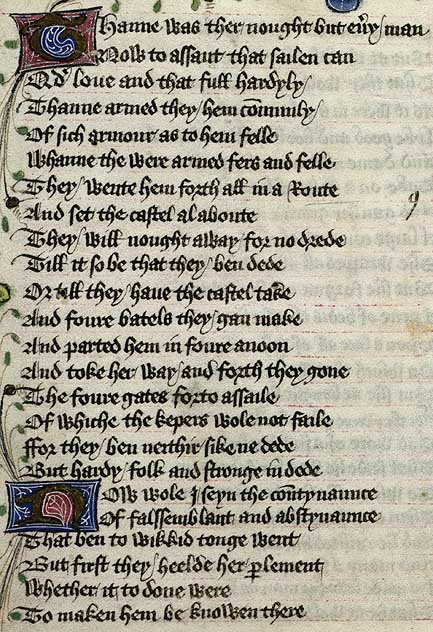 Thanne was ther nought but eu̾y man
Now to assaut that sailen can
Ad̾ loue and that full hardyly
Thanne armed they hem com̄unly
Of sich armour as to hem felle
Whanne the were armed fers and felle
They wente hem forth all in a Route
And set the castel al aboute
They will nought away for no drede
Till it so be that they ben dede
Or till they haue the castel take
And foure batels they gan make
And parted hem in foure anoon
And toke her way and forth they gone
The foure gates forto assaile
Of whiche the kepers wole not faile
ffor they ben neithir sike ne dede
But hardy folk and stronge in dede
Now wole I seyn the coūtynaunce
Of falssemblant and abstynaunce
That ben to wikkid tonge went
But first they heelde her ꝑlement
Whether it to done were
To maken hem be knowen there